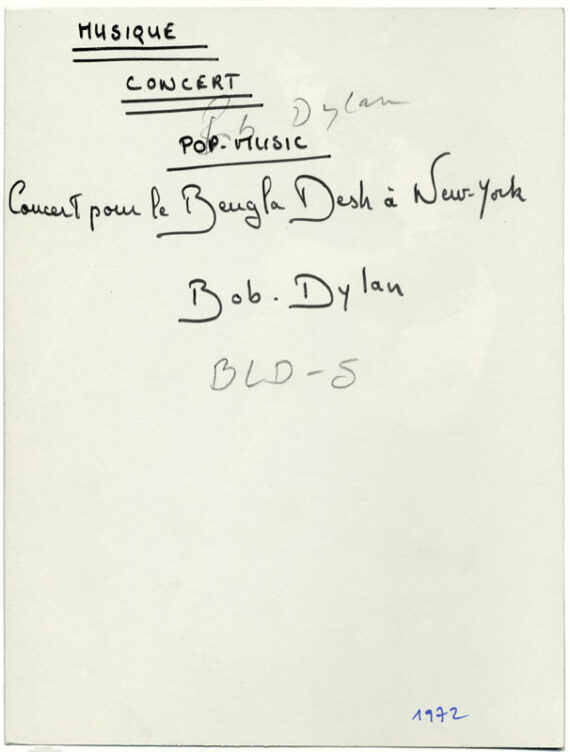 MUSIQUE
CONCERT
Bob Dylan
POP-MUSIC
Concert pour le Bengla Desh à New-York
Bob. Dylan
BLD-5
1972